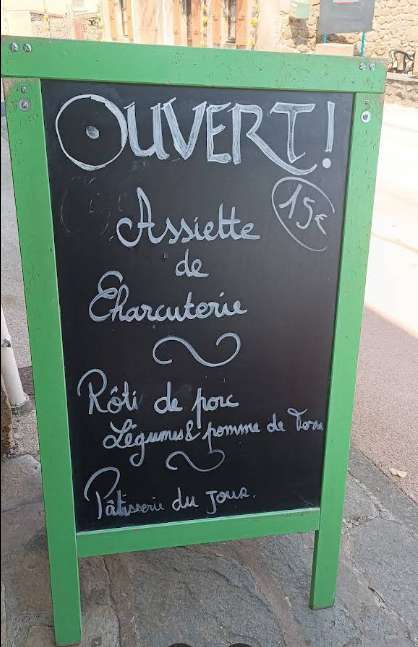 OUVERT!
15€
Assiette
de
Charcuterie
Rôti de porc
Légumes & pomme de Terre
Pâtisserie du JOUR.